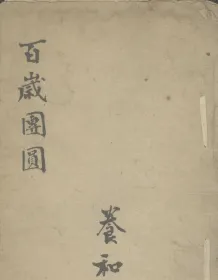 百歲團圓
養和